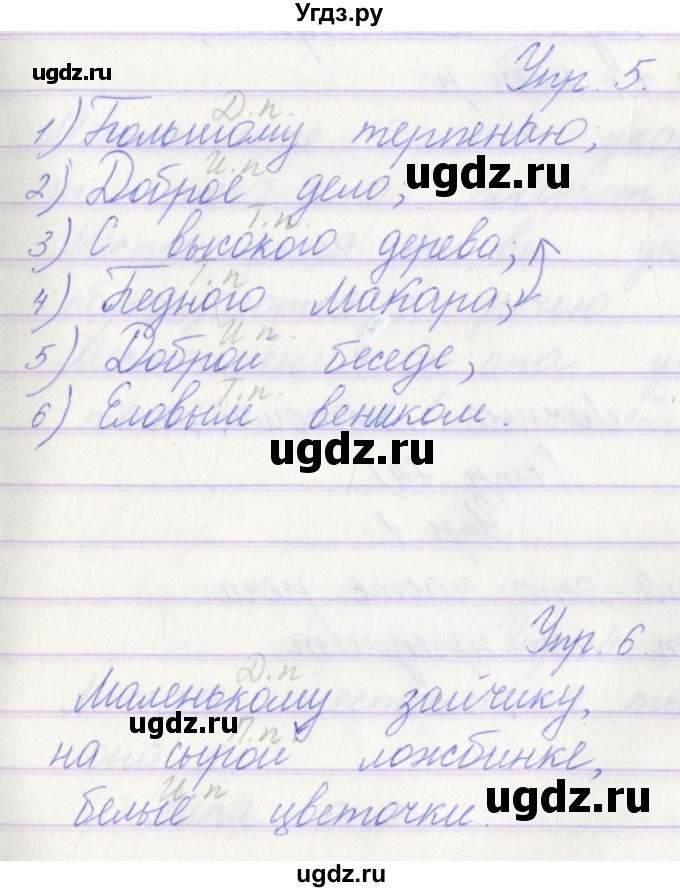 Угдз.ру
ugdz.ru
Упр. 5.
Д.п.
1) Большому терпенью,
И.п
2) Доброе дело;
ugdz.ru
Т.п.
3) С высокого дерева;
Т.п
4) Бедного Макара;
И п.
5) Доброй беседе;
Т.п.
6) Еловым веником.
ugdz.ru
Упр. 6.
Д.п.
Маленькому зайчику,
ugdz.ru
П.п.
на сырой ложбинке,
ugdz.ru
И.п
белые цветочки.
ugdz.ru